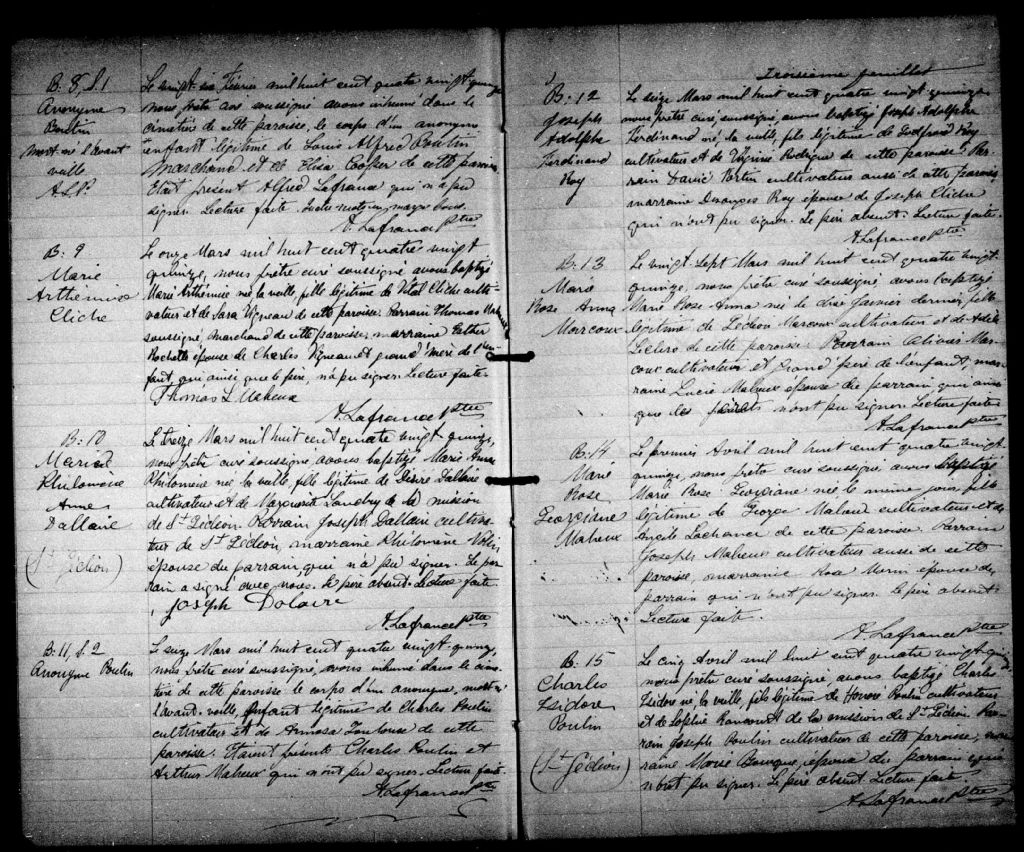 B. 8, S. 1
Anonyme
Poulin
mort-né l'avant
veille
A.L.P.
Le vingt six Février mil huit cent quatre vingt quinze
nous prêtre soussigné avons inhumé dans le
cimetière de cette paroisse, le corps d'un anonyme
enfant légitime de Louis Alfred Poulin
marchand et de Elisa Cooper de cette paroisse
Etait présent Alfred Lafrance qui n'a pu
signer. Lecture faite.
A. Lafrance Ptre
B. 9
Marie
Arthémise
Cliche
Le onze Mars mil huit cent quatre vingt
quinze, nous prêtre curé soussigné avons baptizé
Marie Arthémise née la veille, fille légitime de Vital Cliche culti-
vateur et de Sara Vigneau de cette paroisse. Parrain Thomas
soussigné, marchand de cette paroisse, marraine Esther
Rochette épouse de Charles Vigneau et grand'mère de l'en-
fant, qui ainsi que le père, n'a pu signer. Lecture faite.
Thomas L. Maheux
A. Lafrance Ptre
B. 10
Marie
Philomène
Anna
Dallaire
(St Gédéon)
Le treize Mars mil huit cent quatre vingt quinze,
nous prêtre curé soussigné, avons baptizé Marie Anna
Philomène née la veille, fille légitime de Désiré Dallaire
cultivateur et de Marguerite Landry de la mission
de St Gédéon. Parrain Joseph Dallaire cultiva-
teur de St Gédéon, marraine Philomène
épouse du parrain qui n'a pu signer. Le par-
rain a signé avec nous. Le père absent. Lecture faite.
Joseph Dolaire
A. Lafrance Ptre
B. 11, S. 2
Anonyme Poulin
Le seize Mars mil huit cent quatre vingt quinze,
nous prêtre curé soussigné, avons inhumé dans le cime-
tière de cette paroisse le corps d'un anonyme, mort-né
l'avant-veille, enfant légitime de Charles Poulin
cultivateur et de Toulouse de cette
paroisse. Etaient présents Charles Poulin et
Arthur Maheux qui n'ont pu signer. Lecture faite.
A. Lafrance Ptre
Troisième feuillet
B. 12
Joseph
Adolphe
Ferdinand
Roy
Le seize Mars mil huit cent quatre vingt quinze,
nous prêtre curé, soussigné, avons baptizé Joseph Adolphe
Ferdinand né, la veille, fils légitime de Godfroid Roy
cultivateur et de Virginie Rodrigue de cette paroisse. Par-
rain David Fortin cultivateur aussi de cette paroisse
marraine Desanges Roy épouse de Joseph Cliche
qui n'ont pu signer. Le père absent. Lecture faite.
A. Lafrance Ptre
B. 13
Marie
Rose Anna
Marcoux
Le vingt-sept Mars mil huit cent quatre vingt
quinze, nous prêtre curé soussigné, avons baptizé
Marie Rose Anna née le Janvier dernier, fille
légitime de Gédéon Marcoux cultivateur et de
Leclerc de cette paroisse. Parrain Mar-
coux cultivateur et grand'père de l'enfant, mar-
raine Lucie Maheux épouse du parrain qui ainsi
que les n'ont pu signer. Lecture faite.
A. Lafrance Ptre
B. 14
Marie
Rose
Georgiane
Maheux
Le premier Avril mil huit cent quatre vingt
quinze, nous prêtre curé soussigné, avons baptizé
Marie Rose Georgiane née le même jour, fille
légitime de George Maheux cultivateur et de
Angèle Lachance de cette paroisse. Parrain
Joseph Maheux cultivateur aussi de cette
paroisse, marraine Rosa Morin épouse du
parrain qui n'ont pu signer. Le père absent.
Lecture faite.
A. Lafrance Ptre
B. 15
Charles
Isidore
Poulin
(St Gédéon)
Le cinq Avril mil huit cent quatre vingt quinze
nous prêtre curé soussigné, avons baptizé Charles
Isidore né, la veille, fils légitime de Honoré Poulin cultivateur
et de Sophie de la mission de St Gédéon. Par-
rain Joseph Poulin cultivateur de cette paroisse, mar-
raine épouse du parrain qui
n'ont pu signer. Le père absent. Lecture faite.
A. Lafrance Ptre